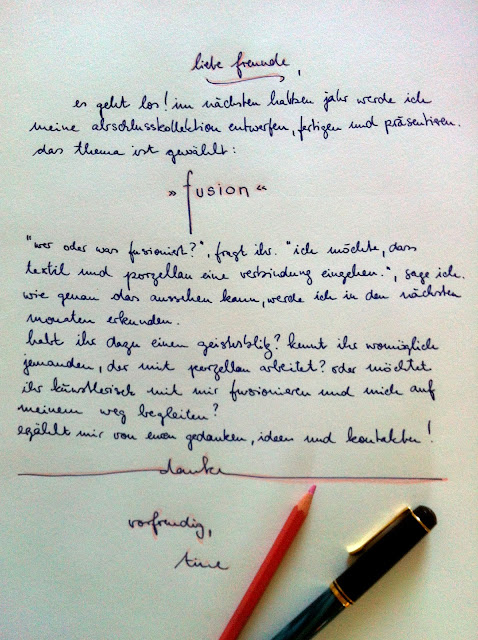 liebe freunde,
es geht los! im nächsten halben jahr werde ich
meine abschlusskollektion entwerfen, fertigen und präsentieren.
das thema ist gewählt:
» fusion «
"wer oder was fusioniert?", fragt ihr. "ich möchte, dass
textil und porzellan eine verbindung eingehen.", sage ich.
wie genau das aussehen kann, werde ich in den nächsten
monaten erkunden.
habt ihr dazu einen geistesblitz? kennt ihr womöglich
jemanden, der mit porzellan arbeitet? oder möchtet
ihr künstlerisch mit mir fusionieren und mich auf
meinem weg begleiten?
erzählt mir von euren gedanken, ideen und kontakten!
danke
vorfreudig,
tine